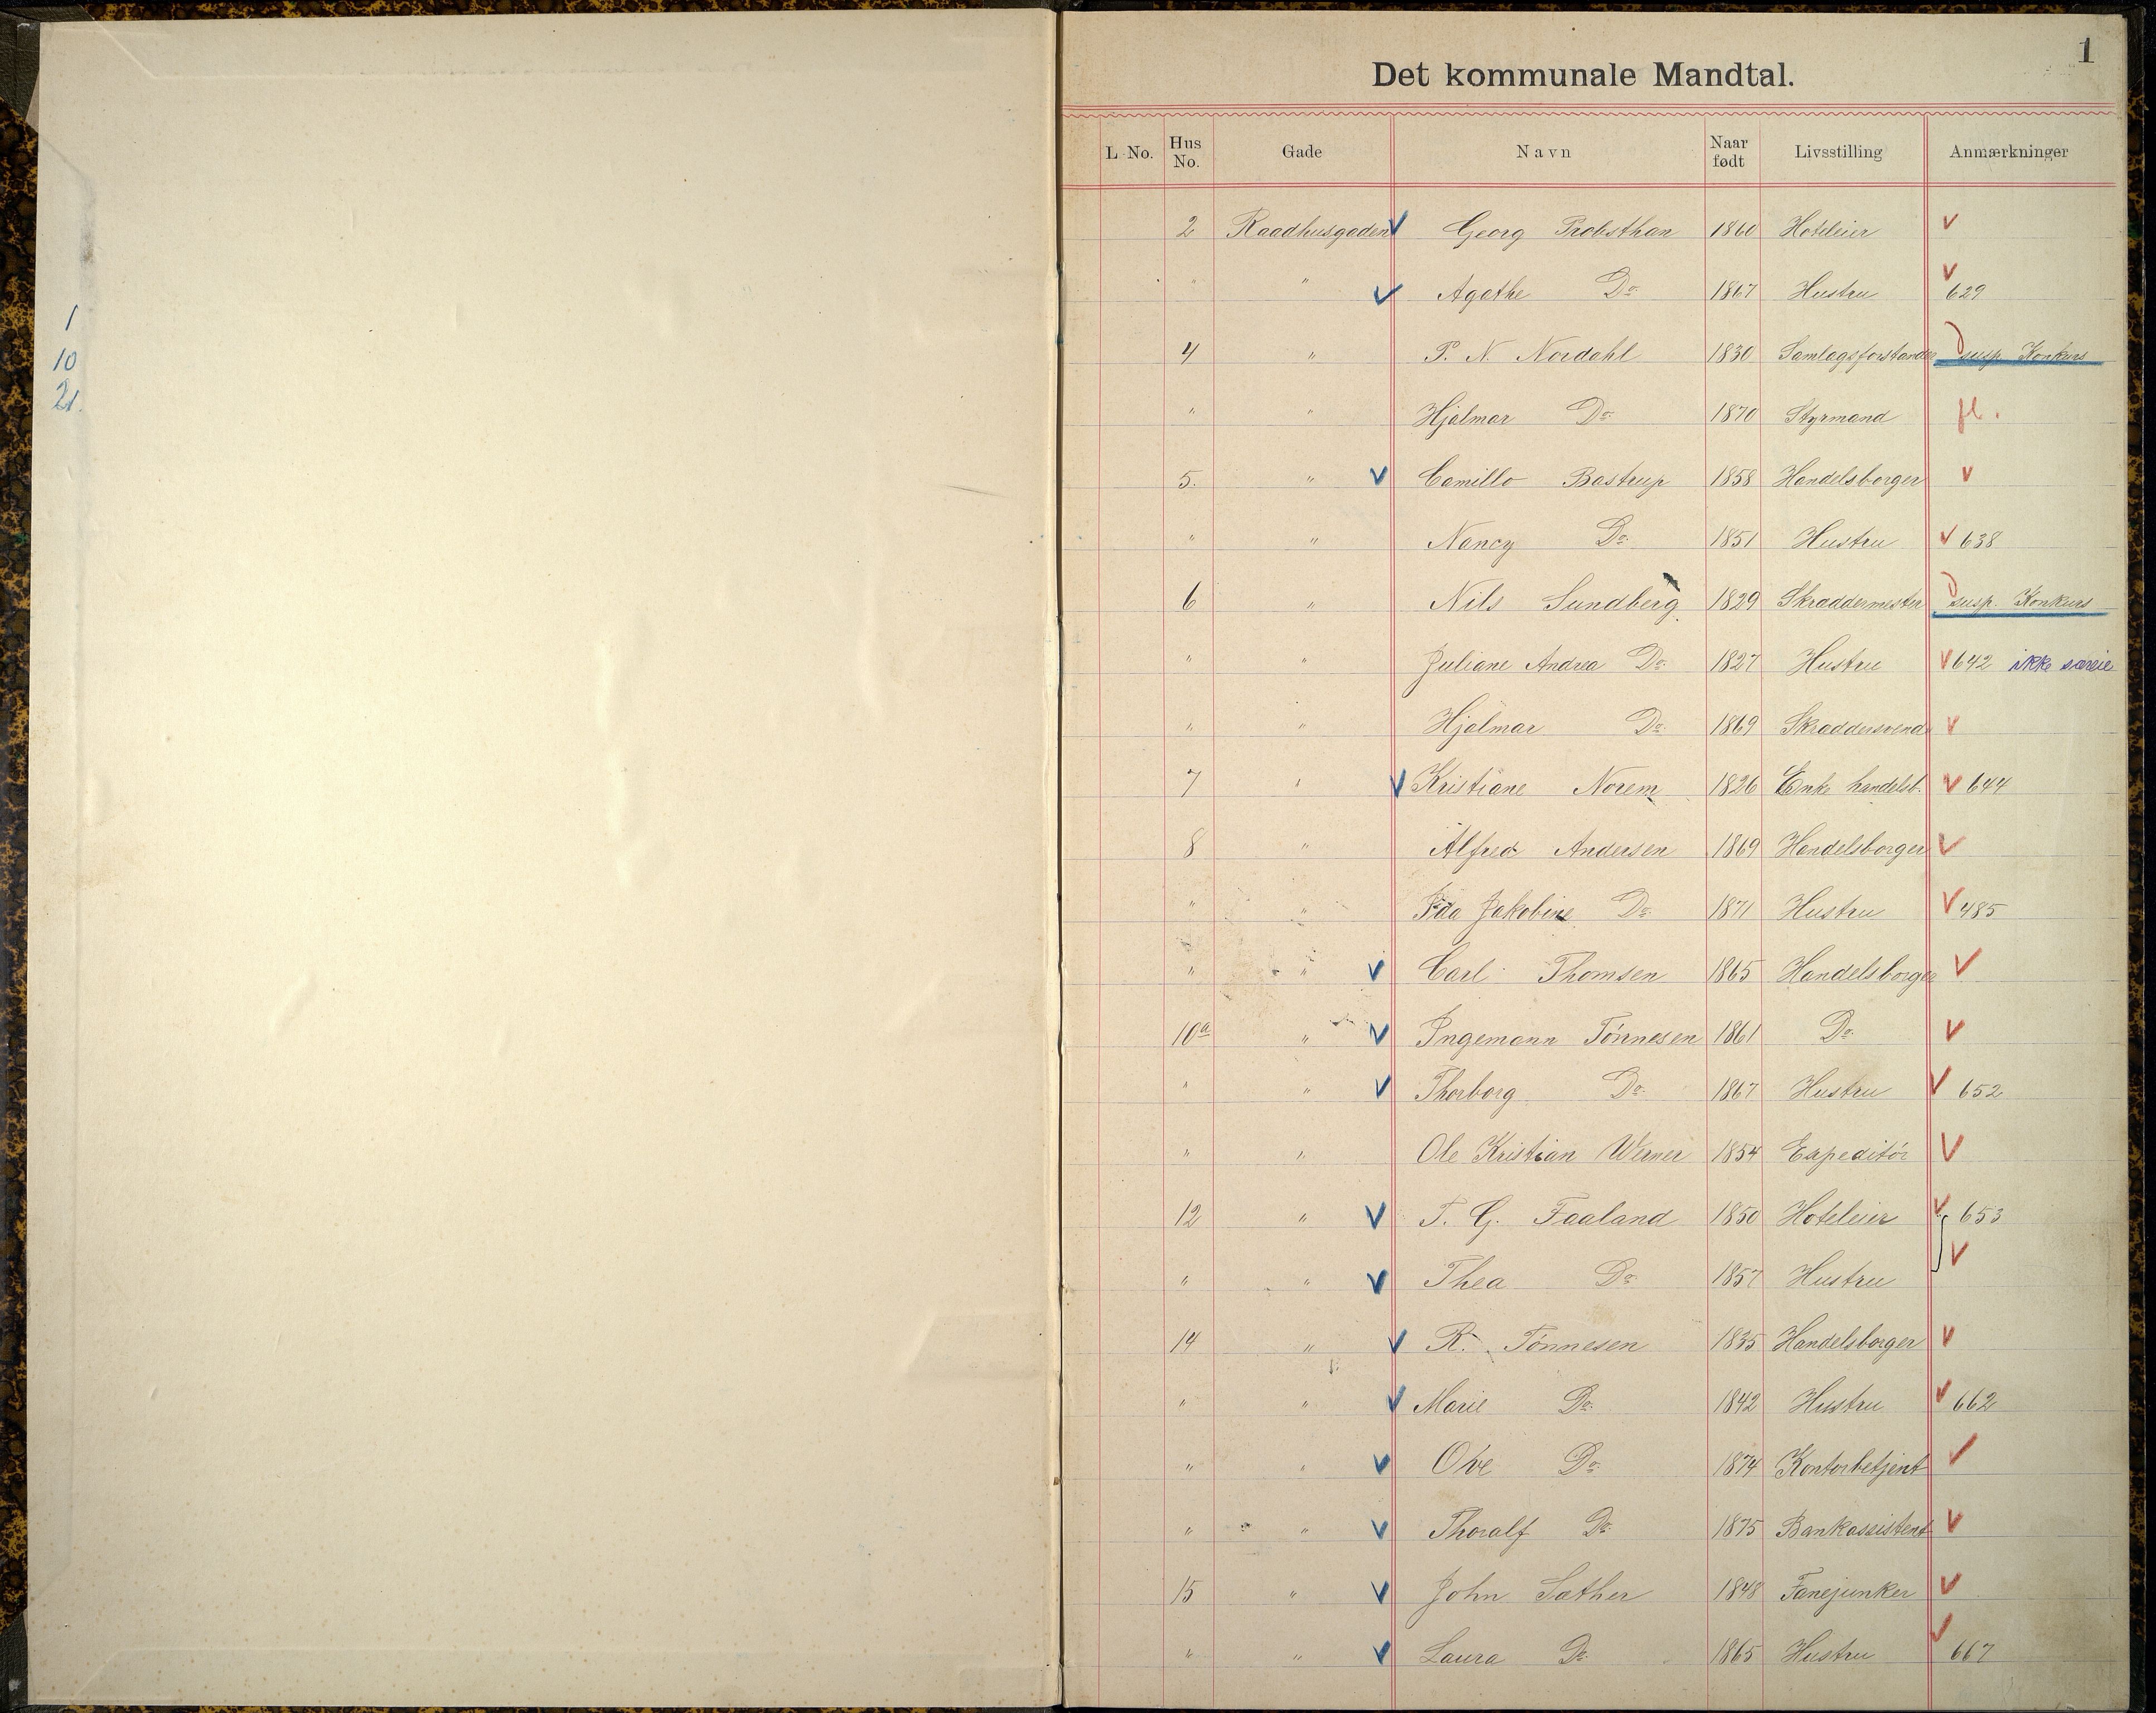 1
10
21.
1
Det kommunale Mandtal.
L. No. Hus No. Gade Navn Naar født Livsstilling Anmærkninger
2 Raadhusgaden V Georg Probsthan 1860 Hoteleier V
" " V Agathe Do 1867 Hustru V 629
4 " P. N. Nordahl 1830 Samlagsforstander susp. Konkurs
" " Hjalmar Do 1870 Styrmand fl.
5. " V Camillo Bastrup 1858 Handelsborger V
" " Nancy Do 1851 Hustru V 638
6 " Nils Sundberg. 1829 Skraddermester susp. Konkurs
" " Juliane Andrea Do 1827 Hustru V 642 ikke særeie
" " Hjalmar Do 1869 Skraddersvend V
7 " V Kristiane Norem 1826 Enke handelsb. V 644
8 " Alfred Andersen 1869 Handelsborger V
" " Ida Jakobine Do 1871 Hustru V 485
" " V Carl Thomsen 1865 Handelsborger V
10a " V Ingemann Tönnesen 1861 Do V
" " V Thorborg Do 1867 Hustru V 652
" " Ole Kristian Werner 1854 Expeditör V
12 " V T. G. Faaland 1850 Hoteleier V 653
" " V Thea Do 1857 Hustru V
14 " V R. Tönnesen 1835 Handelsborger V
" " V Marie Do 1842 Hustru V 662
" " V Ove Do 1874 Kontorbetjent V
" " V Thoralf Do 1875 Bankassistent V
15 " V John Sather 1848 Fanejunker V
" " V Laura Do 1865 Hustru V 667